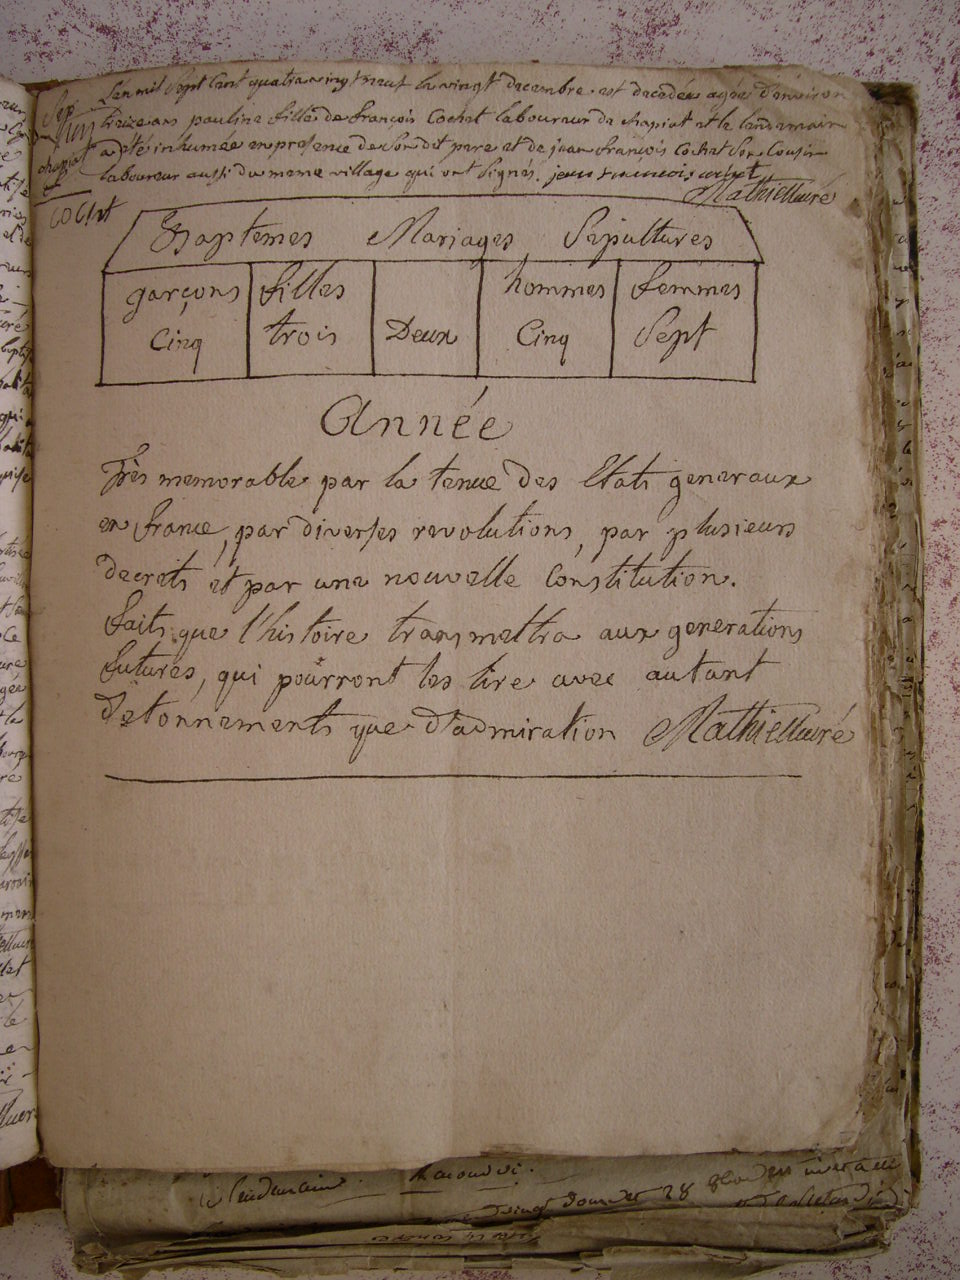 L'an mil Sept Cent quatre vingt neuf le vingt decembre est decedée agée d'environ
treize ans pauline fille de françois Cochet laboureur de chapiat et le lendemain
a eté inhumée en presence de Son dit pere et de jean françois Cochet Son Cousin
laboureur aussi du meme village qui ont Signés. jean francois cochet
Mathieu curé
Sep
chapiat
COChet
Baptemes Mariages Sepultures
garçons filles hommes femmes
Cinq trois Deux Cinq Sept
Année
Très memorable par la tenue des Etats generaux
en france, par diverses revolutions, par plusieurs
decrets et par une nouvelle Constitution.
faits que l'histoire transmettra aux generations
futures, qui pourront les lire avec autant
d'etonnements que d'admiration Mathieu curé
Lendemain
28